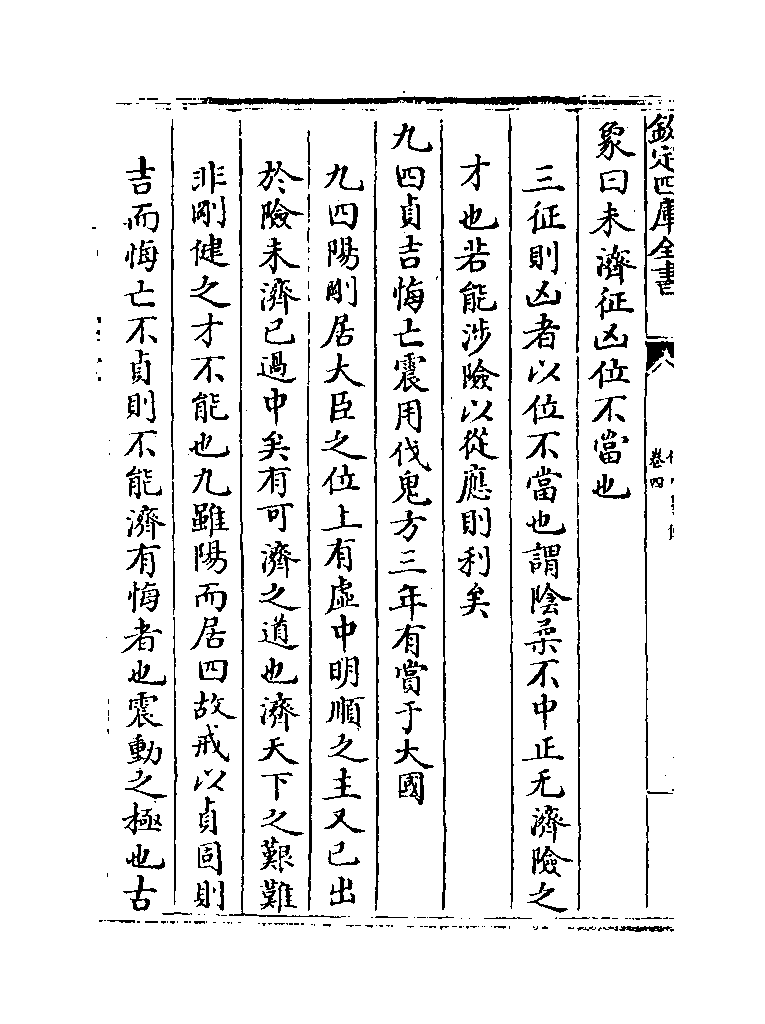 欽定四庫全書
卷四
象曰未濟征凶位不當也
三征則凶者以位不當也謂陰柔不中正无濟險之
才也若能涉險以從應則利矣
九四貞吉悔亡震用伐鬼方三年有賞于大國
九四陽剛居大臣之位上有虛中明順之主又已出
於險未濟已過中矣有可濟之道也濟天下之艱難
非剛健之才不能也九雖陽而居四故戒以貞固則
吉而悔亡不貞則不能濟有悔者也震動之極也古